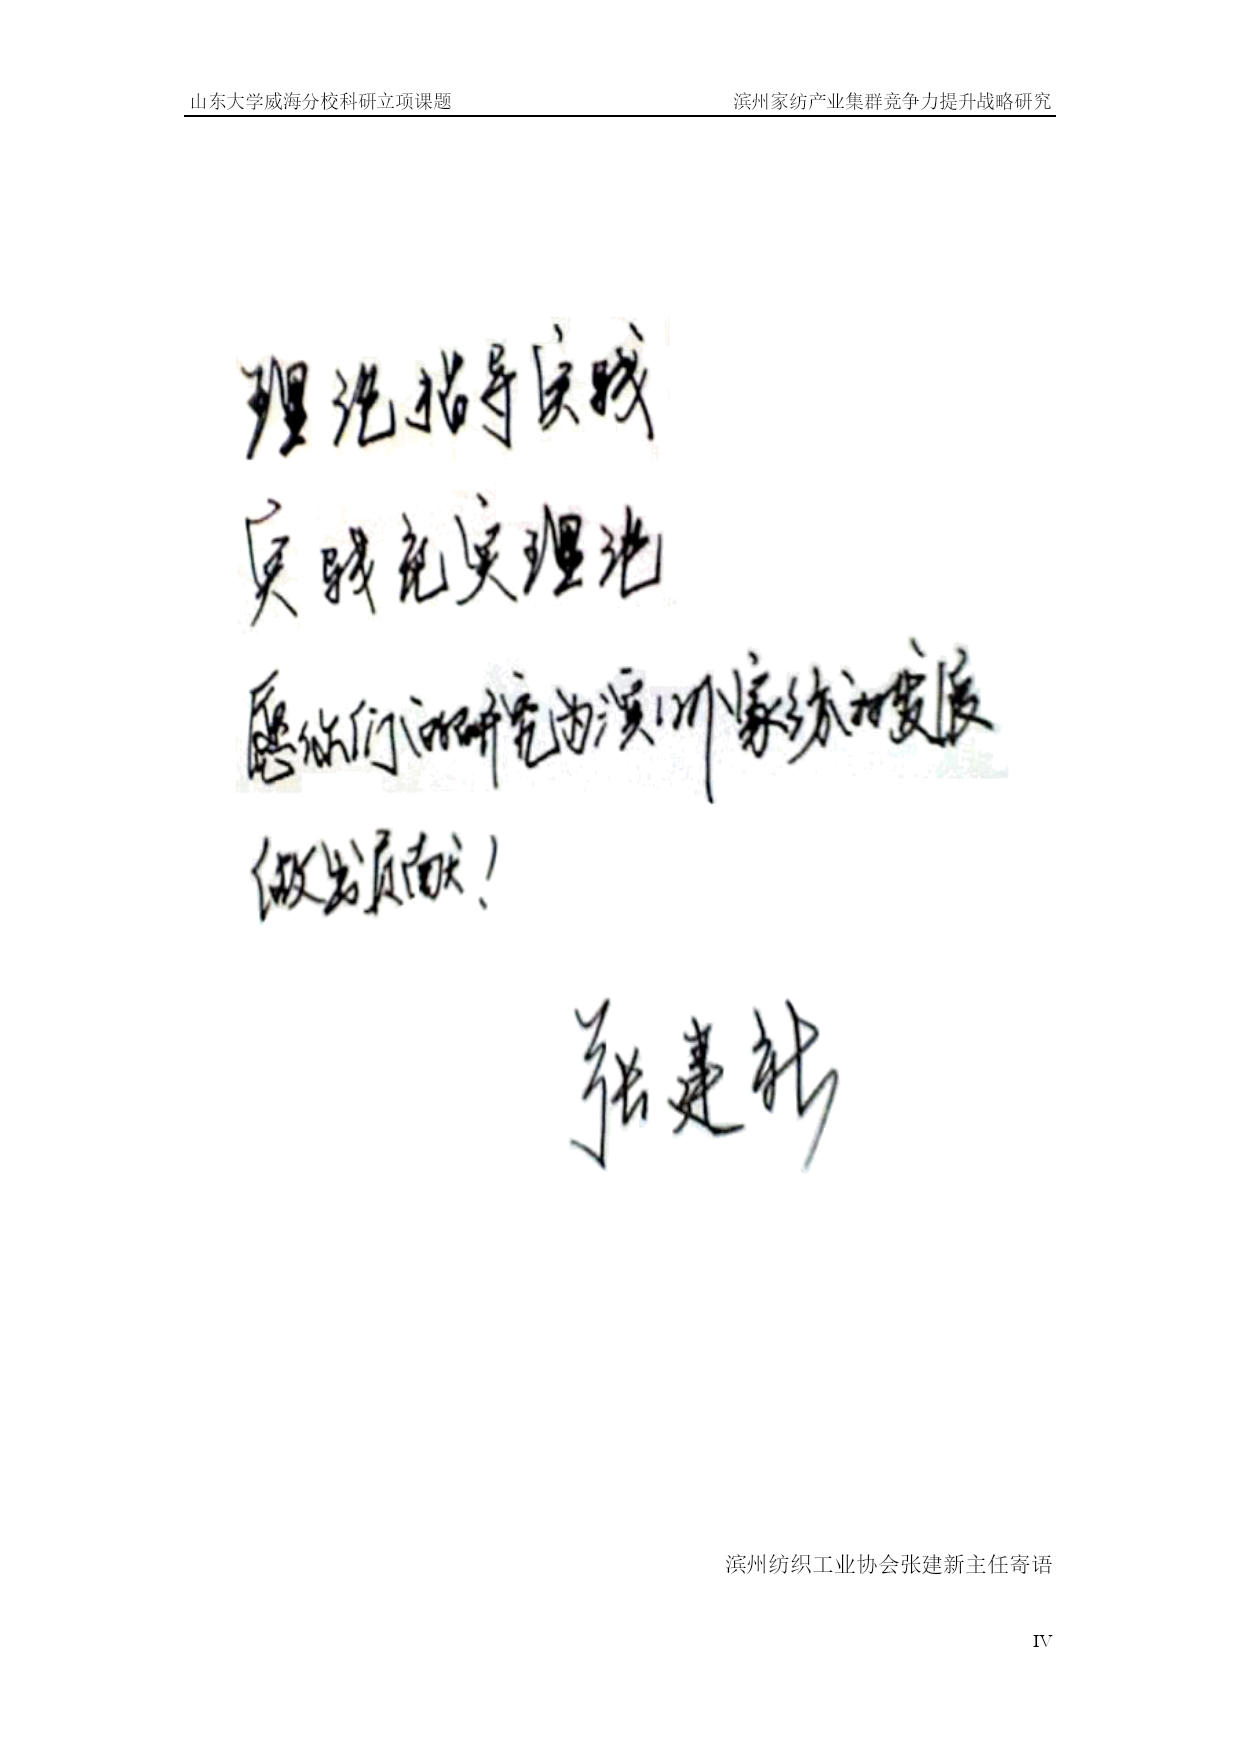 山东大学威海分校科研立项课题 滨州家纺产业集群竞争力提升战略研究
理论指导实践
实践充实理论
愿你们的研究为滨州家纺的发展
做出贡献！
张建新
滨州纺织工业协会张建新主任寄语
IV